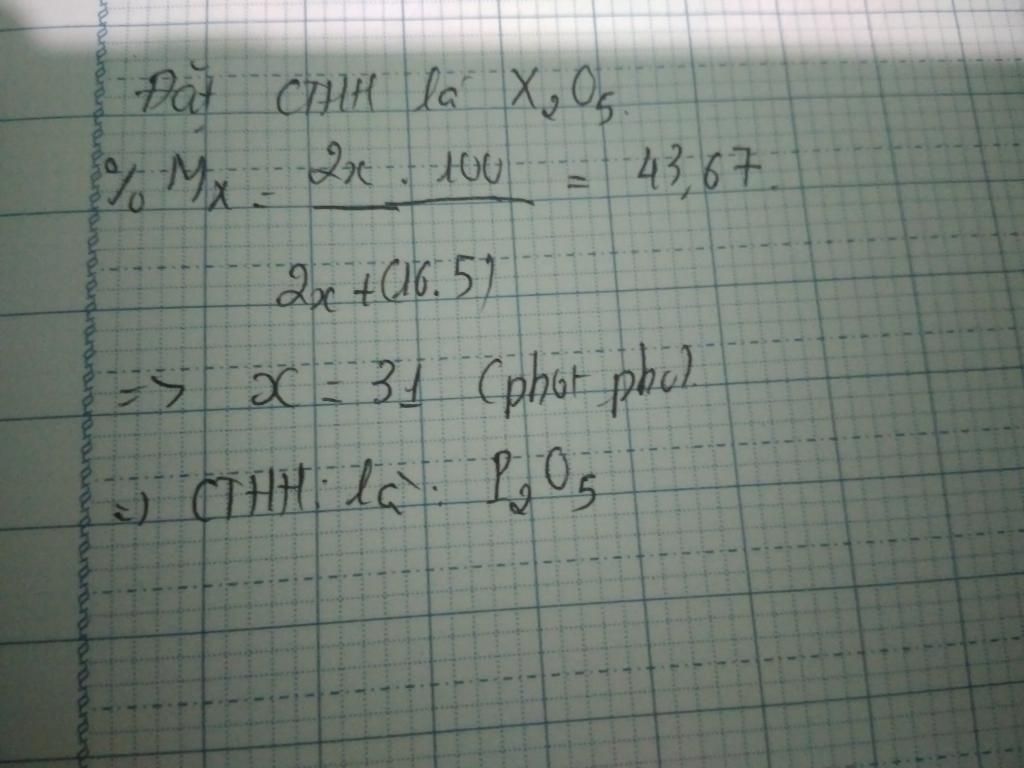 Đặt CTHH là X₂O₅.
% Mₓ = 2x . 100 / 2x + (16.5) = 43,67.
=> x = 31 (phot pho)
=) CTHH là: P₂O₅